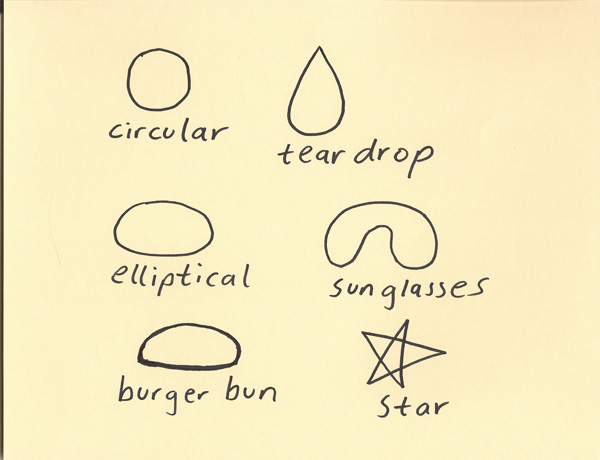 circular
tear drop
elliptical
sunglasses
burger bun
star